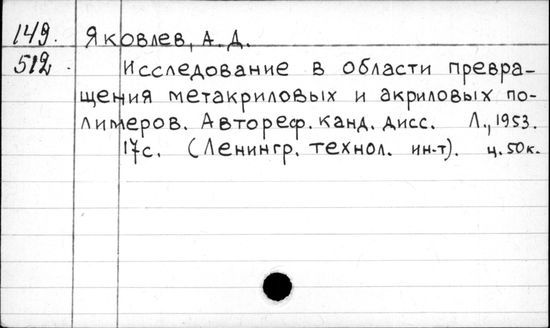 149. Яковлев, А. Д.
512. Исследование в области превра-
щения метакриловых и акриловых по-
лимеров. Автореф. канд. дисс. Л., 1953.
17с. (Ленингр. технол. ин-т). ц. 50к.